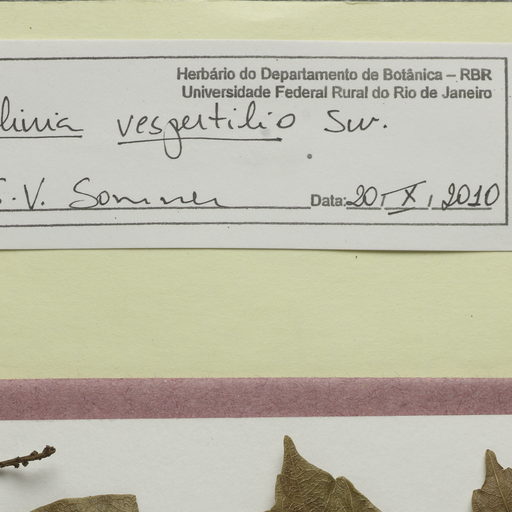 Herbário do Departamento de Botânica – RBR
Universidade Federal Rural do Rio de Janeiro
vespertilio Sw.
.V. Sommer
Data: 20, X, 2010